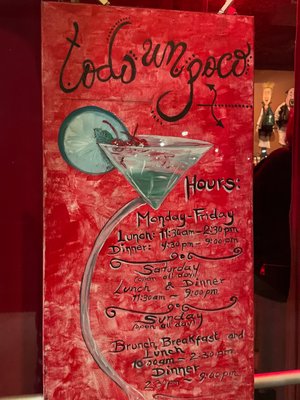 todo un poco
Hours:
Monday-Friday
Lunch: 11:30am-2:30pm
Dinner: 4:30pm - 9:00pm
Saturday
(open all day)
Lunch & Dinner
11:30am - 9:00pm
Sunday
(open all day)
Brunch, Breakfast and
Lunch
10:30am - 2:30pm
Dinner
2:30pm - 9:00pm